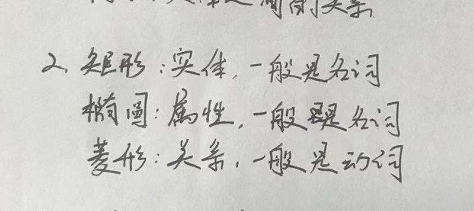 2、矩形：实体，一般是名词
椭圆：属性，一般是名词
菱形：关系，一般是动词